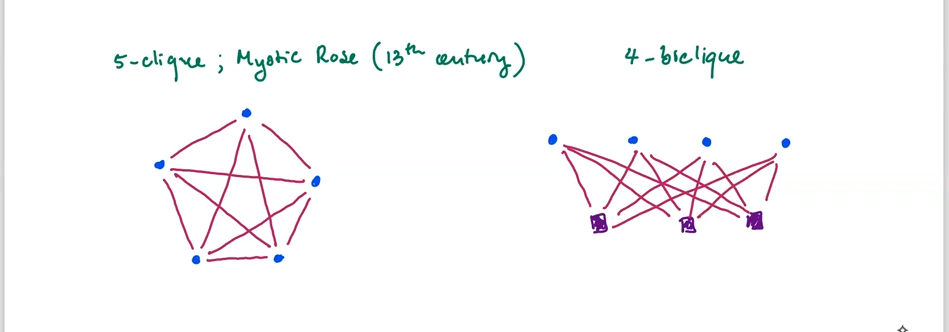 5-clique ; Mystic Rose (13th century)
4-biclique